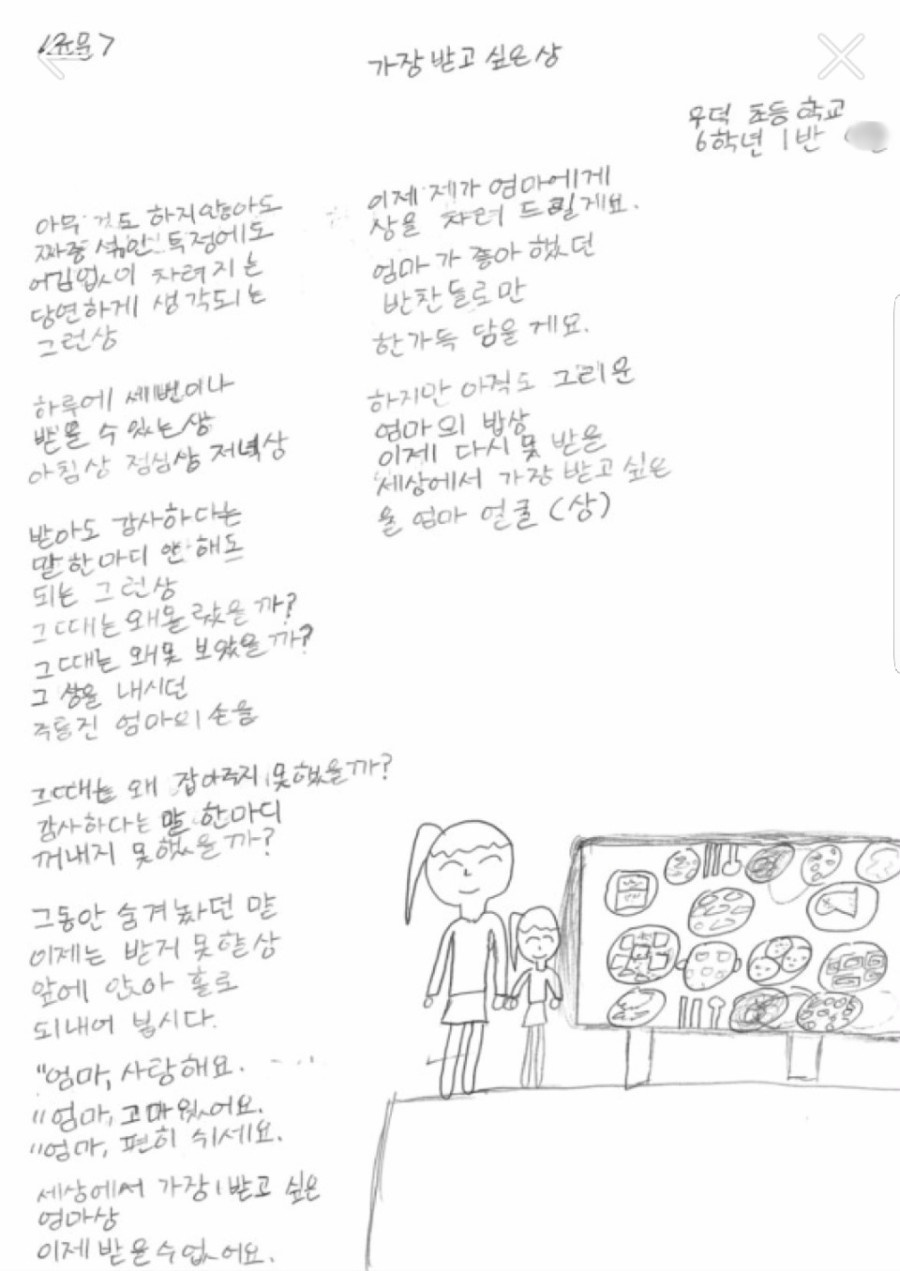 가장 받고 싶은 상
우덕 초등 학교
6학년 1반
아무 것도 하지않아도
짜증 섞인 투정에도
어김없이 차려지는
당연하게 생각되는
그런상
하루에 세번이나
받을 수 있는 상
아침상 점심상 저녁상
받아도 감사하다는
말 한마디 안 해도
되는 그런상
그때는 왜 몰랐을까?
그때는 왜 못 보았을까?
그 상을 내시던
주름진 엄마의 손을
그때는 왜 잡아주지 못했을까?
감사하다는 말 한마디
꺼내지 못했을까?
그동안 숨겨놨던 말
이제는 받지 못할 상
앞에 앉아 홀로
되내어 봅시다.
"엄마, 사랑해요.
"엄마, 고마웠어요.
"엄마, 편히 쉬세요.
세상에서 가장 받고 싶은
엄마상
이제 받을수없어요.
이제 제가 엄마에게
상을 차려 드릴게요.
엄마가 좋아 했던
반찬들로만
한가득 담을게요.
하지만 아직도 그리운
엄마의 밥상
이제 다시 못 받을
세상에서 가장 받고 싶은
울 엄마 얼굴 (상)